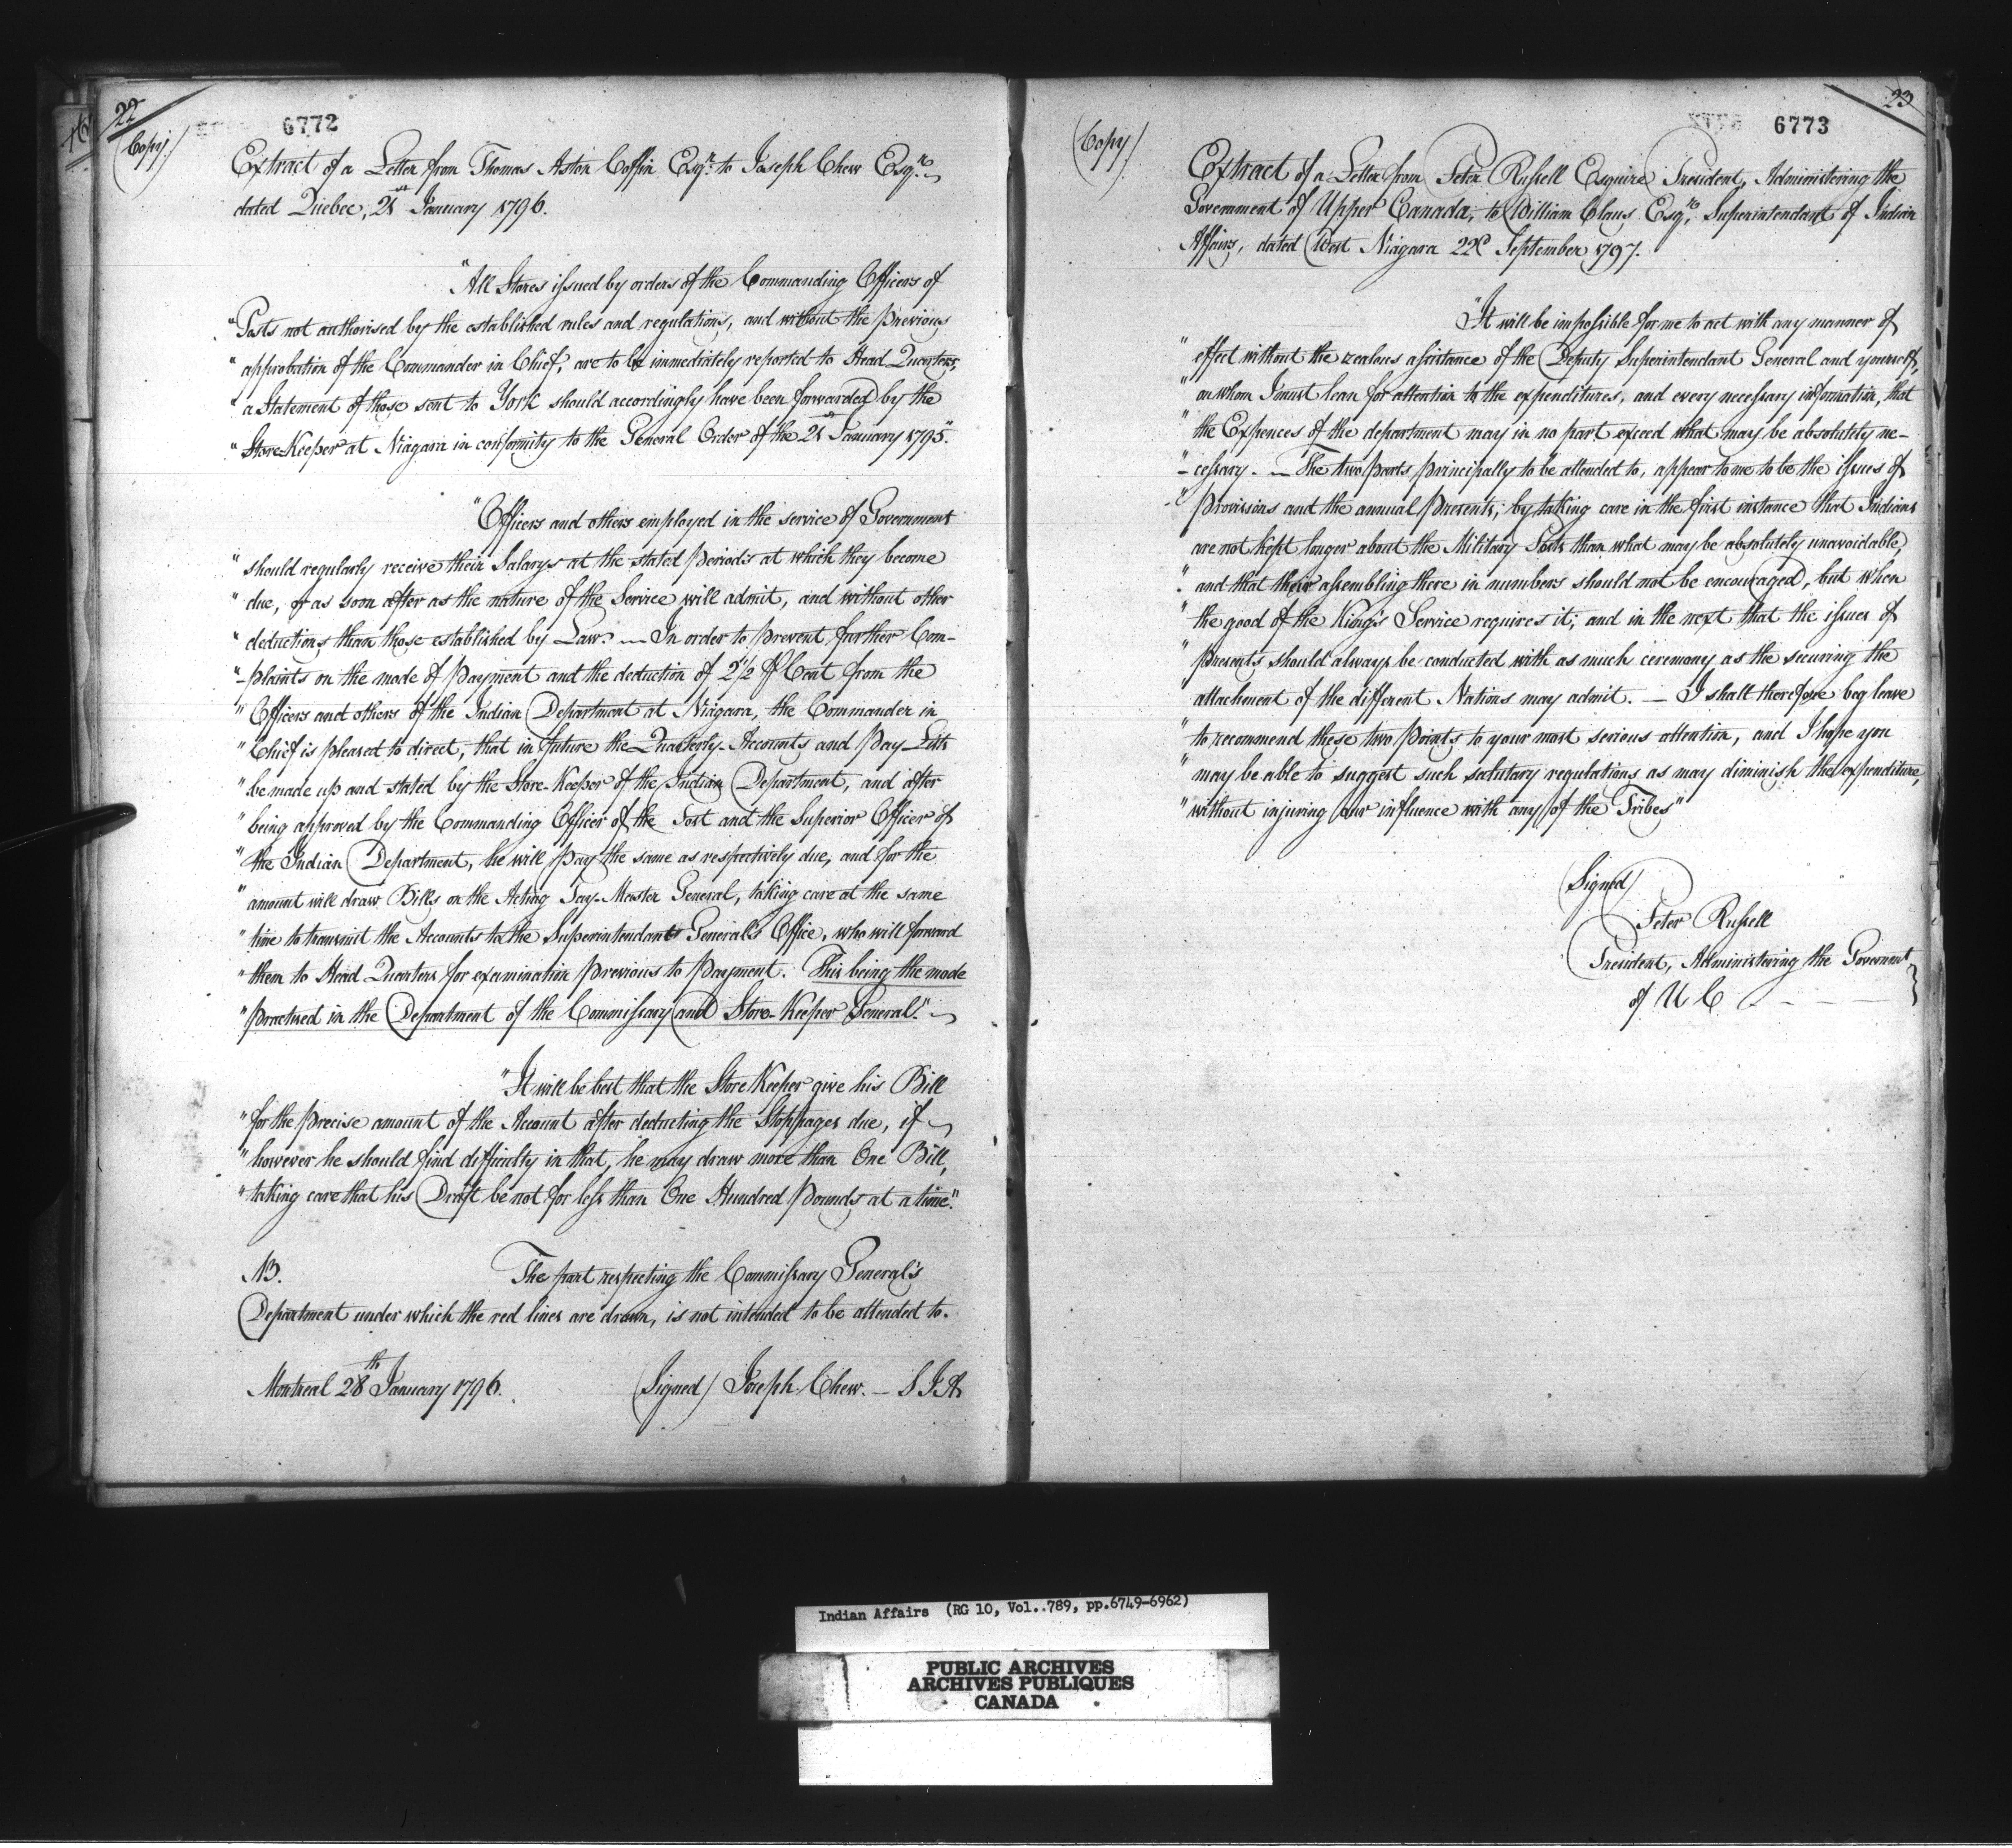 22
6772
(Copy)
Extract of a Letter from Thomas Aston Coffin Esqr. to Joseph Chew Esqre.
dated Quebec, 21st January 1796.
"All Stores issued by orders of the Commanding Officers of
"Posts not authorised by the established rules and regulations, and without the previous
"approbation of the Commander in Chief, are to be immediately reported to Head Quarters,
"a Statement of those sent to York should accordingly have been forwarded by the
"Store-Keeper at Niagara in conformity to the General Order of the 21st January 1795."
"Officers and others employed in the service of Government
"should regularly receive their Salarys at the stated periods at which they become
"due, or as soon after as the nature of the Service will admit, and without other
"deductions than those established by Law. — In order to prevent further Com-
"-plaints on the mode of payment and the deduction of 2 1/2 P Cent from the
"Officers and others of the Indian Department at Niagara, the Commander in
"Chief is pleased to direct, that in future the Quarterly Accounts and Pay Lists
"be made up and stated by the Store-Keeper of the Indian Department, and after
"being approved by the Commanding Officer of the Post and the Superior Officer of
"the Indian Department, he will pay the same as respectively due, and for the
"amount will draw Bills on the Acting Pay-Master General, taking care at the same
"time to transmit the Accounts to the Superintendant General's Office, who will forward
"them to Head Quarters for examination previous to payment. This being the mode
"practised in the Department of the Commissary and Store-Keeper General."
"It will be best that the Store Keeper give his Bill
"for the precise amount of the Account after deducting the Stoppages due, if
"however he should find difficulty in that, he may draw more than One Bill,
"taking care that his Draft be not for less than One Hundred pounds at a time."
NB. The part respecting the Commissary General's
Department under which the red lines are drawn, is not intended to be attended to.
Montreal 28th January 1796. (Signed) Joseph Chew. — S I A
23
6773
(Copy)
Extract of a Letter from Peter Russell Esquire President, Administering the
Government of Upper Canada, to William Claus Esqre. Superintendant of Indian
Affairs, dated West Niagara 22d September 1797.
"It will be impossible for me to act with any manner of
"effect without the zealous assistance of the Deputy Superintendant General and yourself,
"on whom I must lean for attention to the expenditures, and every necessary information, that
"the Expences of the department may in no part exceed what may be absolutely ne-
"-cessary. — The two parts principally to be attended to, appear to me to be the issues of
"provisions and the annual presents; by taking care in the first instance that Indians
are not kept longer about the Military Posts than what may be absolutely unavoidable,
"and that their assembling there in numbers should not be encouraged, but when
"the good of the King's Service requires it; and in the next that the issues of
"presents should always be conducted with as much ceremony as the securing the
attachment of the different Nations may admit. — I shall therefore beg leave
"to recommend these two points to your most serious attention, and I hope you
"may be able to suggest such salutary regulations as may diminish the expenditure,
"without injuring our influence with any of the Tribes"
(Signed)
Peter Russell
President, Administering the Governmt
of U C
Indian Affairs (RG 10, Vol..789, pp.6749-6962)
PUBLIC ARCHIVES
ARCHIVES PUBLIQUES
CANADA